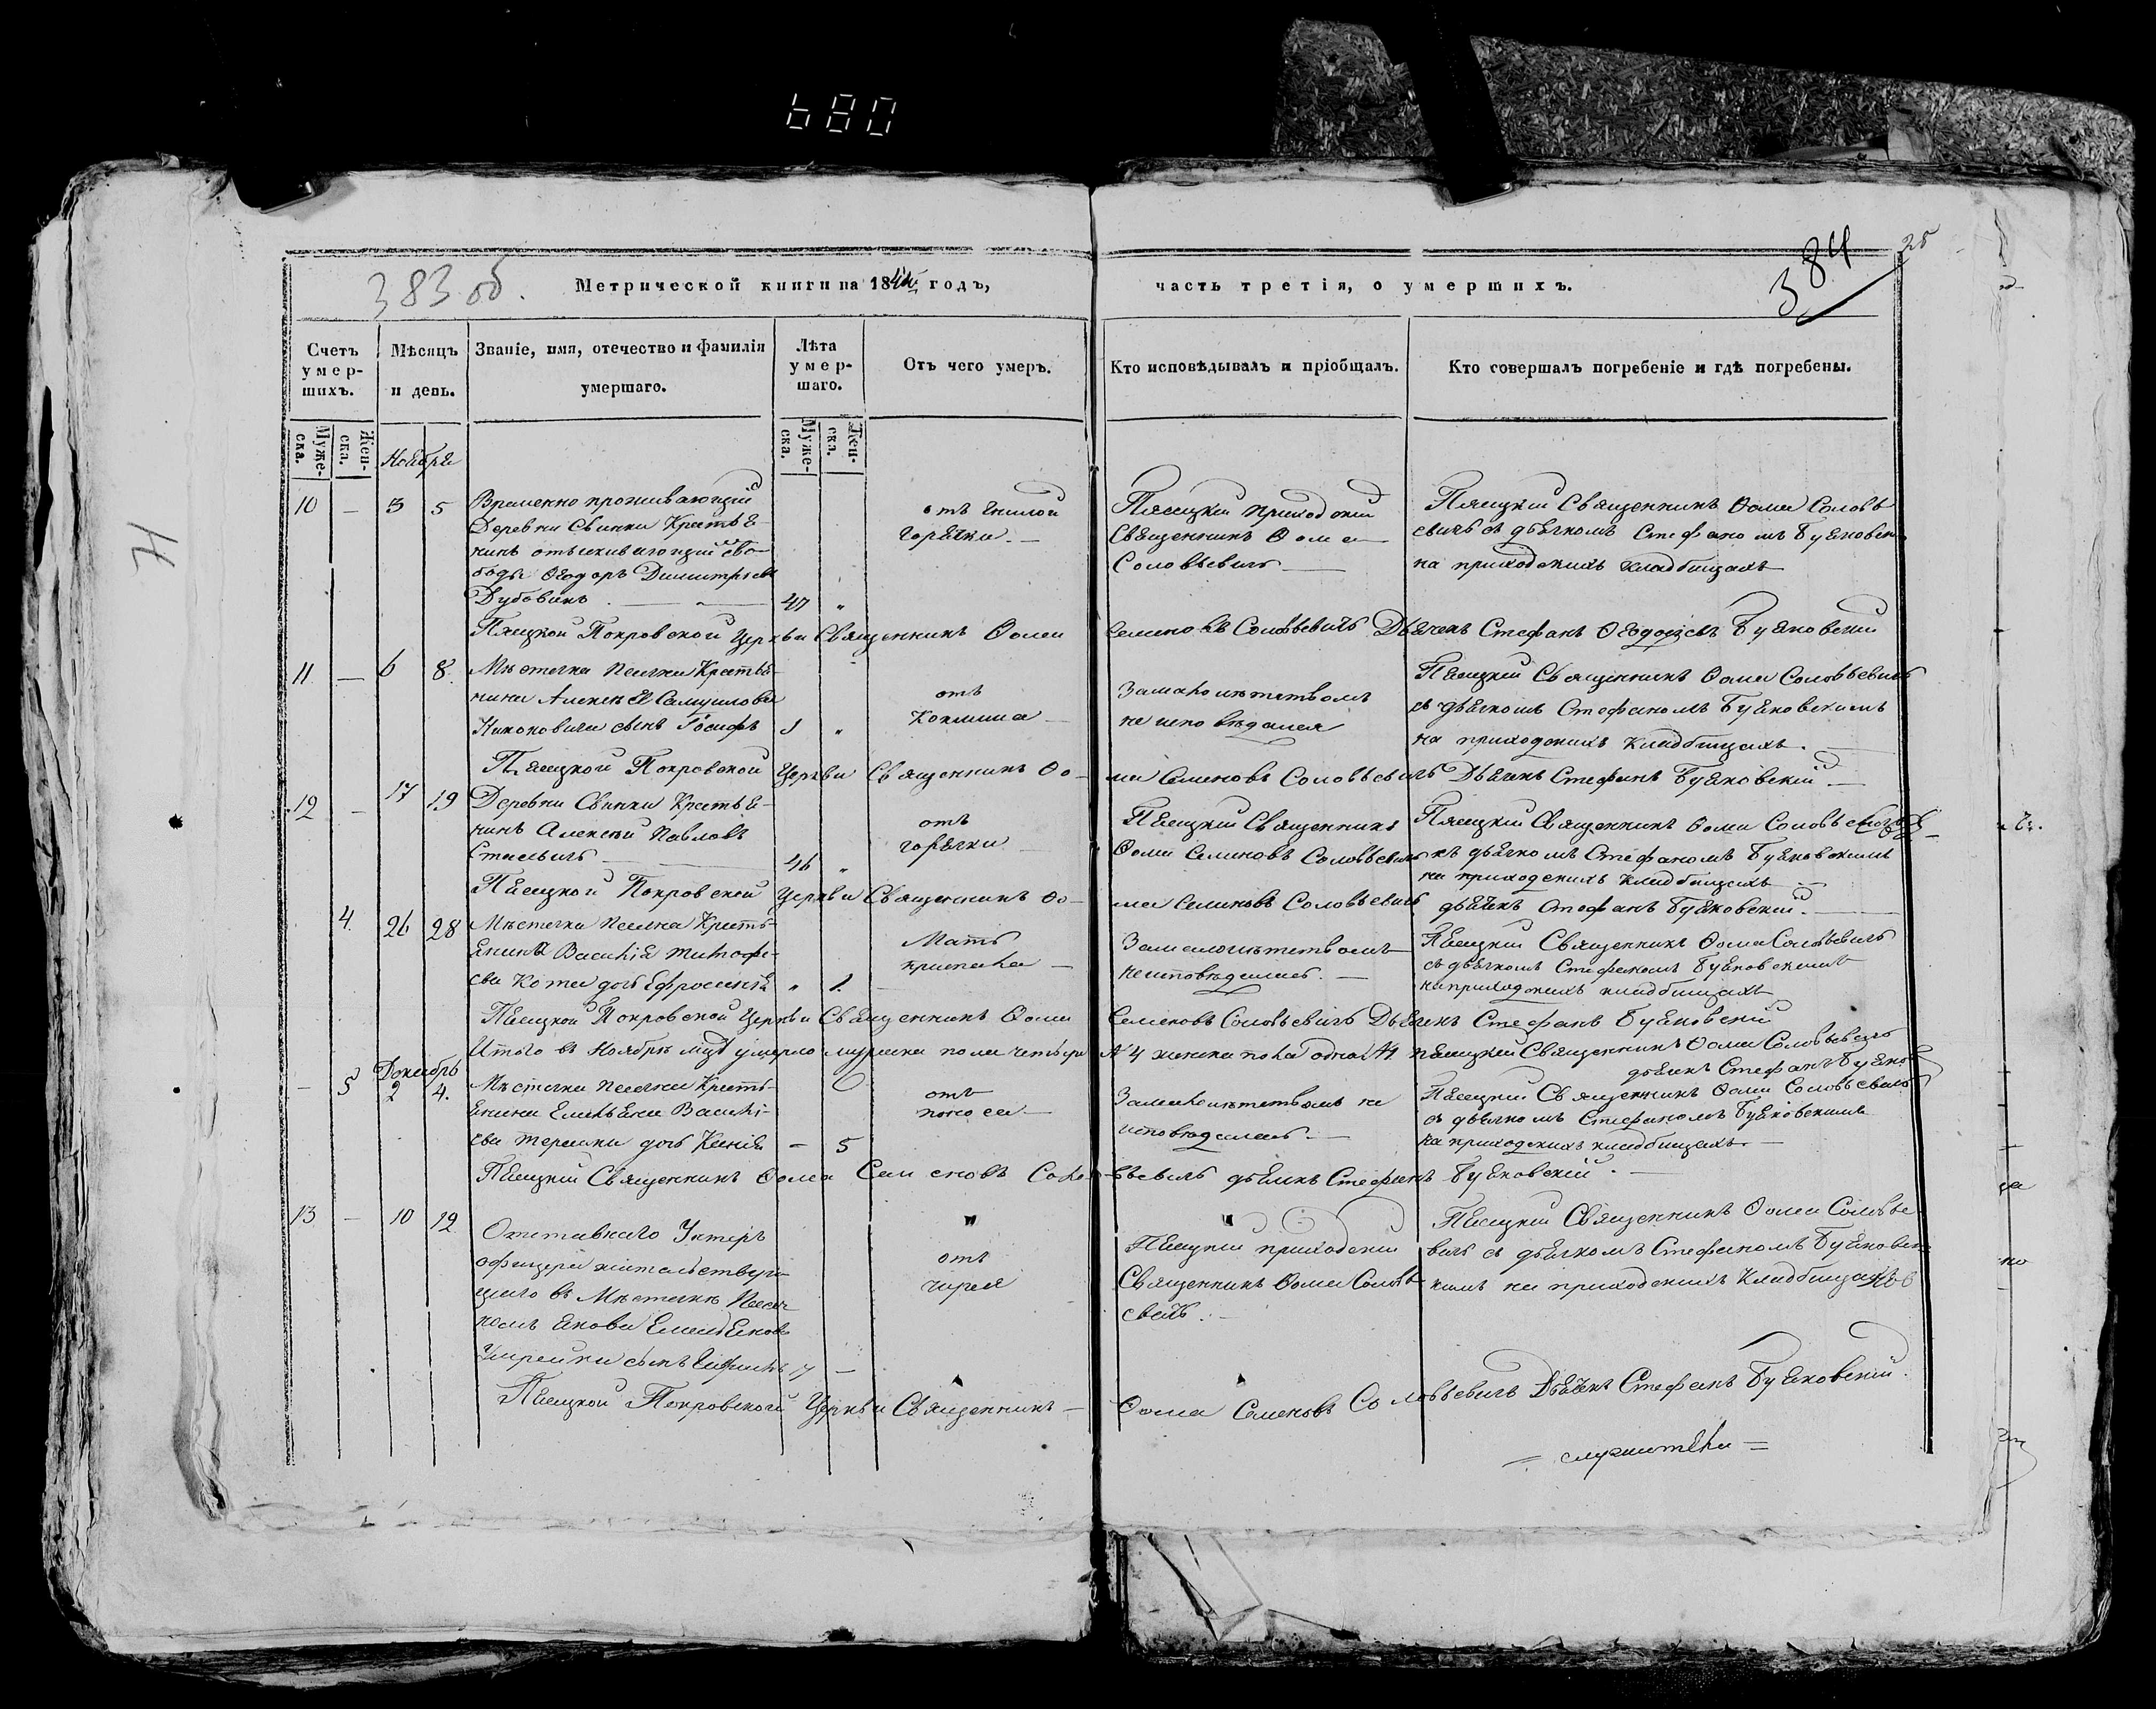 680
383 об.
Метрической книги на 1844 годъ,
часть третія, о умершихъ.
384
25
Счетъ умер-шихъ.
Мѣсяцъ и день.
Званіе, имя, отечество и фамилія умершаго.
Лѣта умер-шаго.
Отъ чего умеръ.
Кто исповѣдывалъ и пріобщалъ.
Кто совершалъ погребеніе и гдѣ погребены.
Муже-ска.
Жен-ска.
Муже-ска.
Жен-ска.
Ноября
10 — 3 5 Временно проживающій
Деревни Свинки Крестья-
нинъ отыскивающій сво-
боды Ѳеодоръ Димитріевъ
Дубовикъ 47 „
отъ гнилой
горячки. —
Пясецкій приходскій
Священникъ Ѳома
Соловьевичъ —
Пясецкій Священникъ Ѳома Соловь
евичъ съ дьячкомъ Стефаномъ Буяковск
на приходскихъ кладбищахъ
Пясецкой Покровской Церкви Священникъ Ѳома Семеновъ Соловьевичъ Дьячекъ Стефанъ Ѳеодосіевъ Буяковскій
11 — 6 8. Мѣстечка Песчки Крестья-
нина Алексѣя Самуилова
Никоновича сынъ Іосифъ 1 „
отъ
коклюша —
За малолѣтствомъ
не исповѣдался
Пясецкій Священникъ Ѳома Соловьевичъ
съ дьячкомъ Стефаномъ Буяковскимъ
на приходскихъ кладбищахъ. —
Пясецкой Покровской Церкви Священникъ Ѳо- ма Семеновъ Соловьевичъ Дьячекъ Стефанъ Буяковскій —
12 — 17 19 Деревни Свинки Крестья-
нинъ Алексѣй Павловъ
Стасевичъ — 46 „
отъ
горячки —
Пясецкій Священникъ
Ѳома Семеновъ Соловьевичъ
Пясецкій Священникъ Ѳома Соловьевичъ
съ дьячкомъ Стефаномъ Буяковскимъ
на приходскихъ кладбищахъ —
Пясецкой Покровской Церкви Священникъ Ѳо- ма Семеновъ Соловьевичъ дьячекъ Стефанъ Буяковскій. —
4. 26 28 Мѣстечка Песчка Кресть-
янина Василія Тимофе-
ева дочь Ефросинія „ 1.
Мать
приспала —
За малолѣтствомъ
неисповѣдалась. —
Пясецкій Священникъ Ѳома Соловьевичъ
съ дьячкомъ Стефаномъ Буяковскимъ
на приходскихъ кладбищахъ
Пясецкой Покровской Церкви Священникъ Ѳома Семеновъ Соловьевичъ Дьячекъ Стефанъ Буяковскій
Итого въ Ноябрѣ умерло мужска пола четыре № 4 женска пола одна Пясецкій Священникъ Ѳома Соловьевичъ
дьячекъ Стефанъ Буяко
Декабрь
— 5 2 4. Мѣстечка Песчки Кресть-
янина Емельяна Василі-
ева дочь Ксенія — 5
отъ
поноса —
За малолѣтствомъ не
исповѣдалась. —
Пясецкій Священникъ Ѳома Соловьевичъ
съ дьячкомъ Стефаномъ Буяковскимъ
на приходскихъ кладбищахъ. —
Пясецкій Священникъ Ѳома Семеновъ Соловьевичъ дьячекъ Стефанъ Буяковскій. —
13 — 10 12 Отставнаго Унтеръ
офицера жительствую-
щаго въ Мѣстечкѣ Песч-
комъ Якова
сынъ —
отъ
чирея
Пясецкій приходскій
Священникъ Ѳома Соловь-
евичъ. —
Пясецкій Священникъ Ѳома Соловье
вичъ съ дьячкомъ Стефаномъ Буяковс
кимъ на приходскихъ кладбищахъ
Пясецкой Покровской Церкви Священникъ — Ѳома Семеновъ Соловьевичъ Дьячекъ Стефанъ Буяковскій.
= служители =